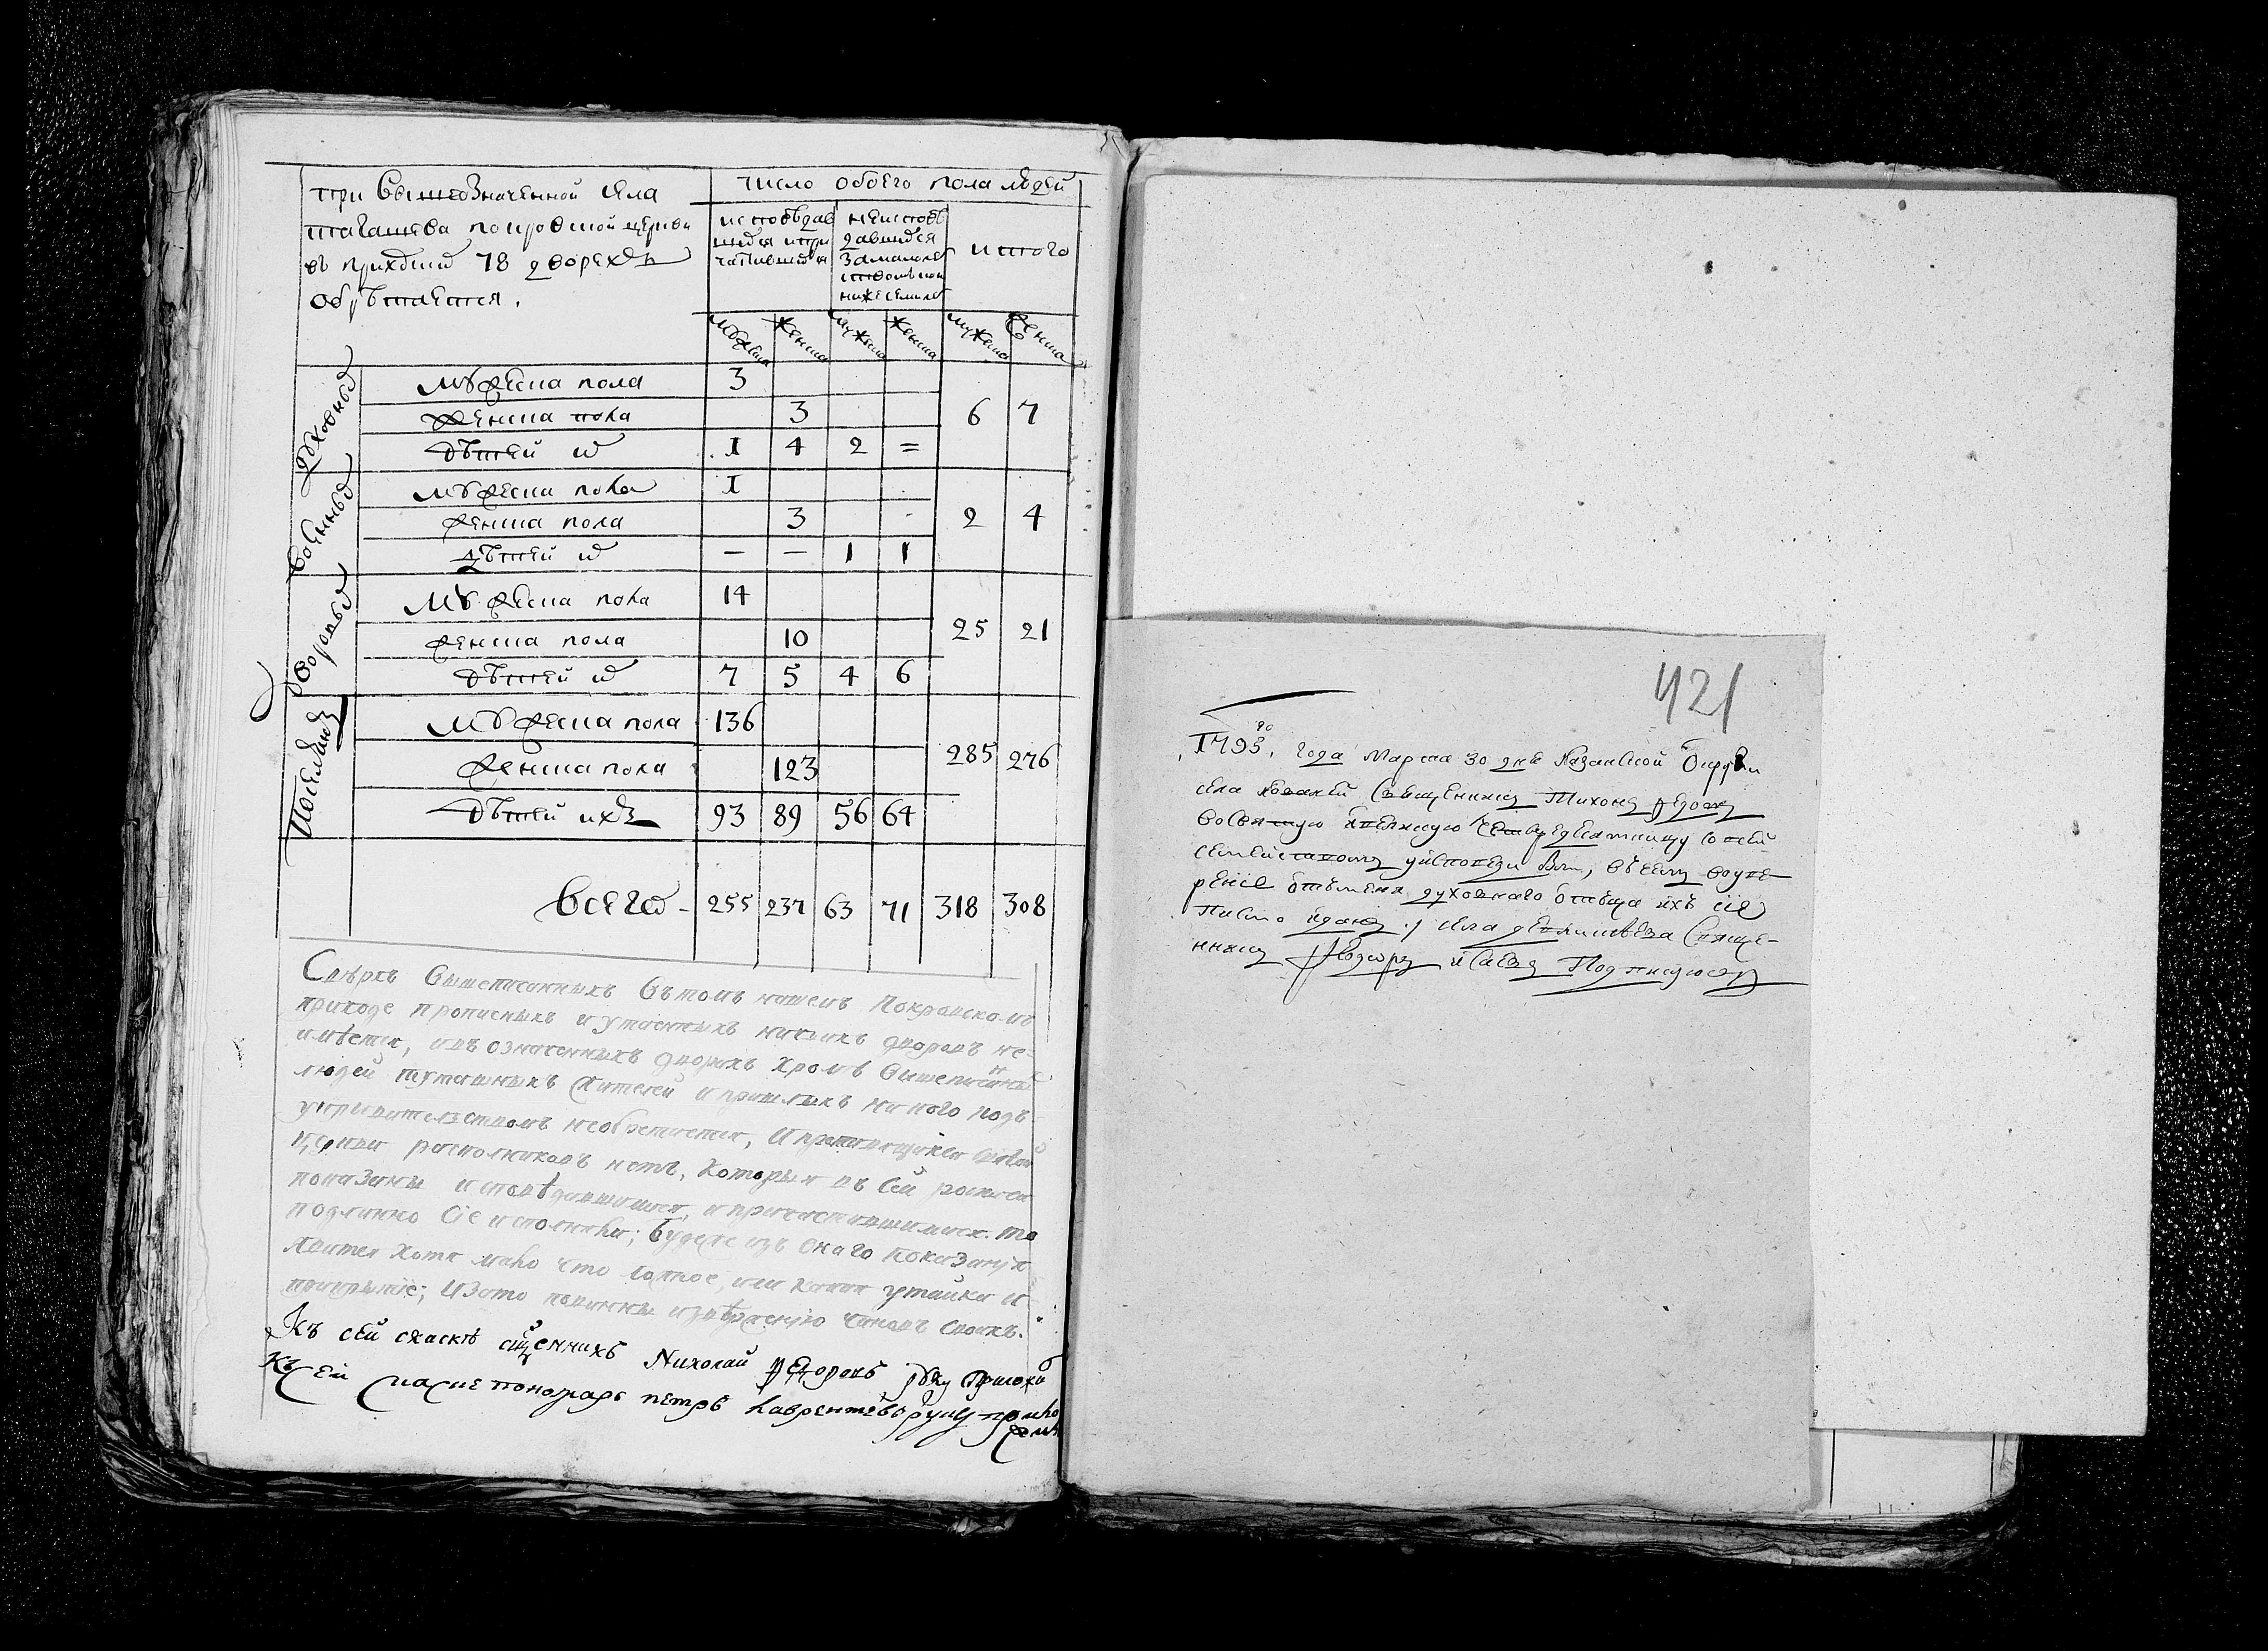 при вышеозначенной села
тагашева покровской церкви
въ приходскихъ 78 дворехъ
обрѣтается.
число обоего пола людей
исповѣдав
шихся и при
частившихся
неисповѣ
давшихся
за малолѣ
тствомъ
ниже семи лѣ
итого
мужеска женска мужеска женска мужеска женска
духовныхъ
мужеска пола 3
женска пола 3 6 7
дѣтей их 1 4 2 =
военныхъ
мужеска пола 1
женска пола 3 2 4
дѣтей их — — 1 1
дворовыхъ
мужеска пола 14
женска пола 10 25 21
дѣтей их 7 5 4 6
поселянъ
мужеска пола 136
женска пола 123 285 276
дѣтей ихъ 93 89 56 64
всего - 255 237 63 71 318 308
Сверхъ вышеписанныхъ въ томъ нашемъ Покровскомъ
приходе прописныхъ и утаенныхъ никакихъ дворовъ не-
имѣется, и въ означенныхъ дворахъ кромѣ вышеписанныхъ
людей тутошныхъ жителей и пришлыхъ никого подъ
укрывительствомъ необретается, и противящихся святой
церкви раскольниковъ нетъ, которыя въ сей росписи
показаны исповѣдавшимися, и причастившимися то
подлинно сіе исполнили; Буде же изъ онаго показанія
явится хотя мало что ложное, или какая утайка и
прикрытіе; И за то повинны извѣржению чиновъ своихъ.
Къ сей скаскѣ сщенникъ Николай Федоровъ руку приложи
Къ сей скаске пономарь петръ лаврентьевъ руку прило
жилъ
421
1795. года Марта 30 дня Казанской Округи
села Священникъ Тихонъ Федоровъ
во святую великую четыредесятницу со всей
семействомъ у исповеди былъ, въ чемъ во уве-
рение отъ меня духовнаго отца ихъ сие
писмо и дано / села Свяще-
нникъ Федоръ Исаевъ Подписуюсь